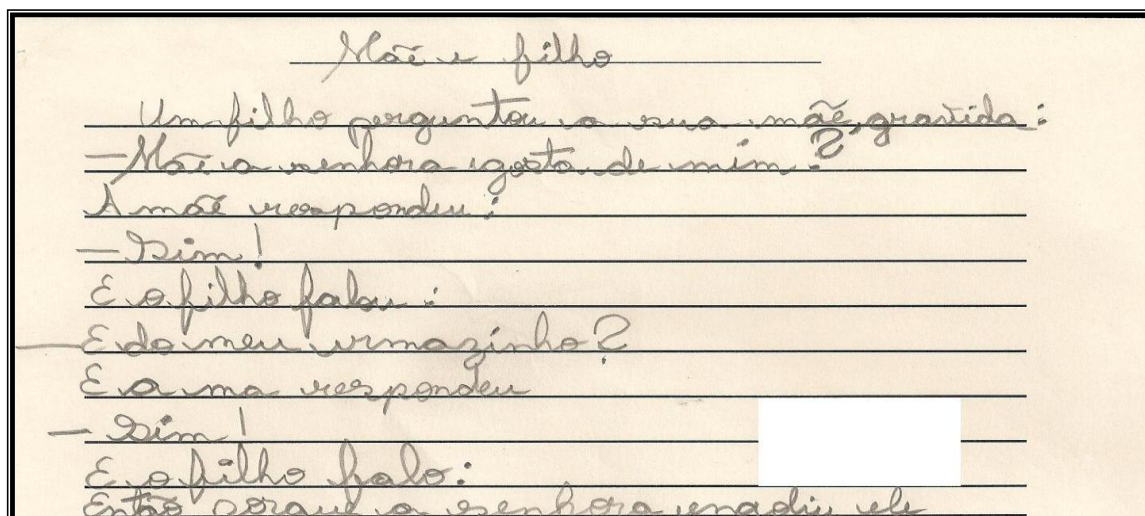 Mãe e filho
Um filho perguntou a sua mãe, gravida:
— Mãe a senhora gosta de mim?
A mãe respondeu:
— Sim!
E o filho falou:
— E do meu irmazinho?
E a ma respondeu
— Sim!
E o filho falo:
Então porque a senhora ele